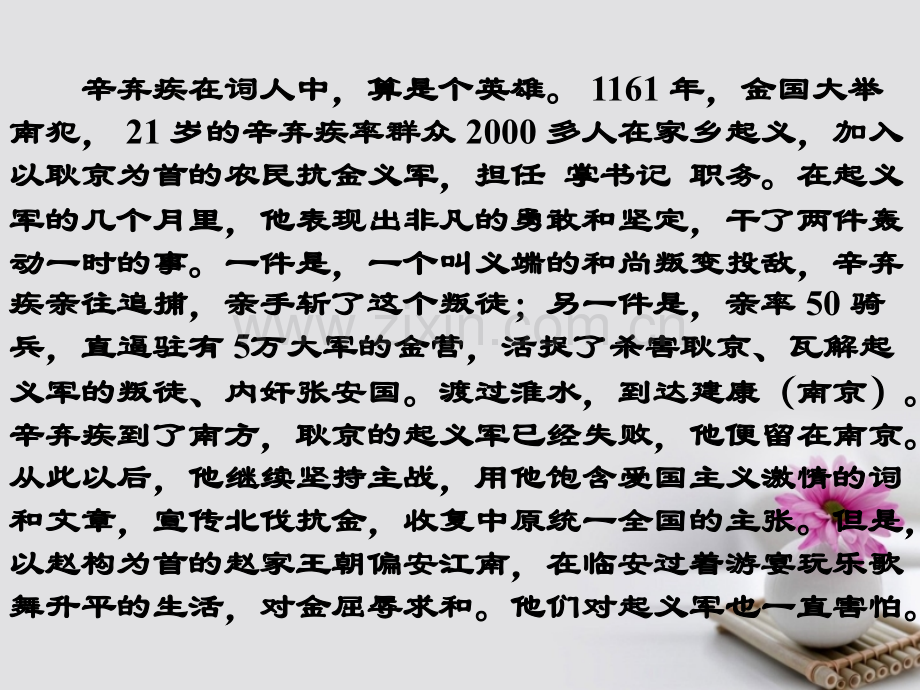 辛弃疾在词人中，算是个英雄。 1161 年，金国大举
南犯， 21 岁的辛弃疾率群众 2000 多人在家乡起义，加入
以耿京为首的农民抗金义军，担任 掌书记 职务。在起义
军的几个月里，他表现出非凡的勇敢和坚定，干了两件轰
动一时的事。一件是，一个叫义端的和尚叛变投敌，辛弃
疾亲往追捕，亲手斩了这个叛徒；另一件是，亲率 50 骑
兵，直逼驻有 5万大军的金营，活捉了杀害耿京、瓦解起
义军的叛徒、内奸张安国。渡过淮水，到达建康（南京）。
辛弃疾到了南方，耿京的起义军已经失败，他便留在南京。
从此以后，他继续坚持主战，用他饱含爱国主义激情的词
和文章，宣传北伐抗金，收复中原统一全国的主张。但是，
以赵构为首的赵家王朝偏安江南，在临安过着游宴玩乐歌
舞升平的生活，对金屈辱求和。他们对起义军也一直害怕。
www.zixin.com.cn